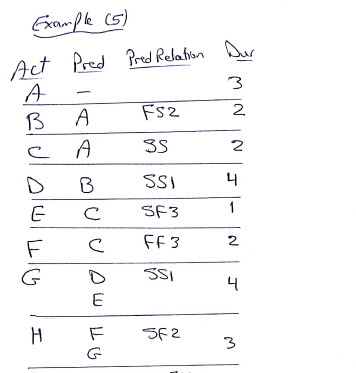 Example (5)
Act Pred Pred Relation Dur
A - 3
B A FS2 2
C A SS 2
D B SS1 4
E C SF3 1
F C FF3 2
G D SS1 4
E
H F SF2 3
G